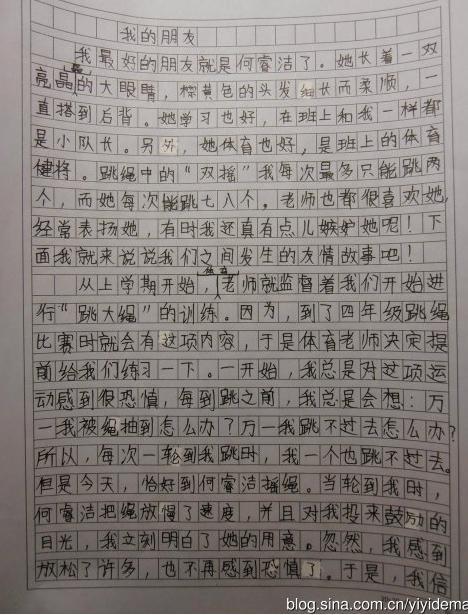 我的朋友
我最好的朋友就是何睿洁了。她长着一双
亮晶晶的大眼睛，棕黄色的头发细长而柔顺，一
直搭到后背。她学习也好，在班上和我一样都
是小队长。另外，她体育也好，是班上的体育
健将。跳绳中的“双摇”我每次最多只能跳两
个，而她每次能跳七八个。老师也都很喜欢她，
经常表扬她，有时我还真有点儿嫉妒她呢！下
面我就来说说我们之间发生的友情故事吧！
从上学期开始，体育老师就监督着我们开始进
行“跳大绳”的训练。因为，到了四年级跳绳
比赛时就会有这项内容，于是体育老师决定提
前给我们练习一下。一开始，我总是对这项运
动感到很恐慎，每到跳之前，我总是会想：万
一我被绳抽到怎么办了万一我跳不过去怎么办？
所以，每次一轮到我跳时，我一个也跳不过去。
但是今天，恰好到何睿洁摇绳。当轮到我时，
何睿洁把绳放慢了速度，并且对我投来鼓励的
目光，我立刻明白了她的用意。忽然，我感到
放松了许多，也不再感到恐慎了。于是，我信
blog.sina.com.cn/yiyidema